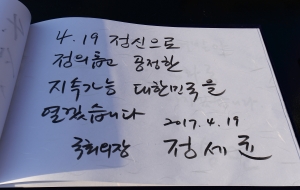 4.19 정신으로
정의롭고 공정한
지속가능 대한민국을
열겠습니다
2017. 4. 19
국회의장 정세균